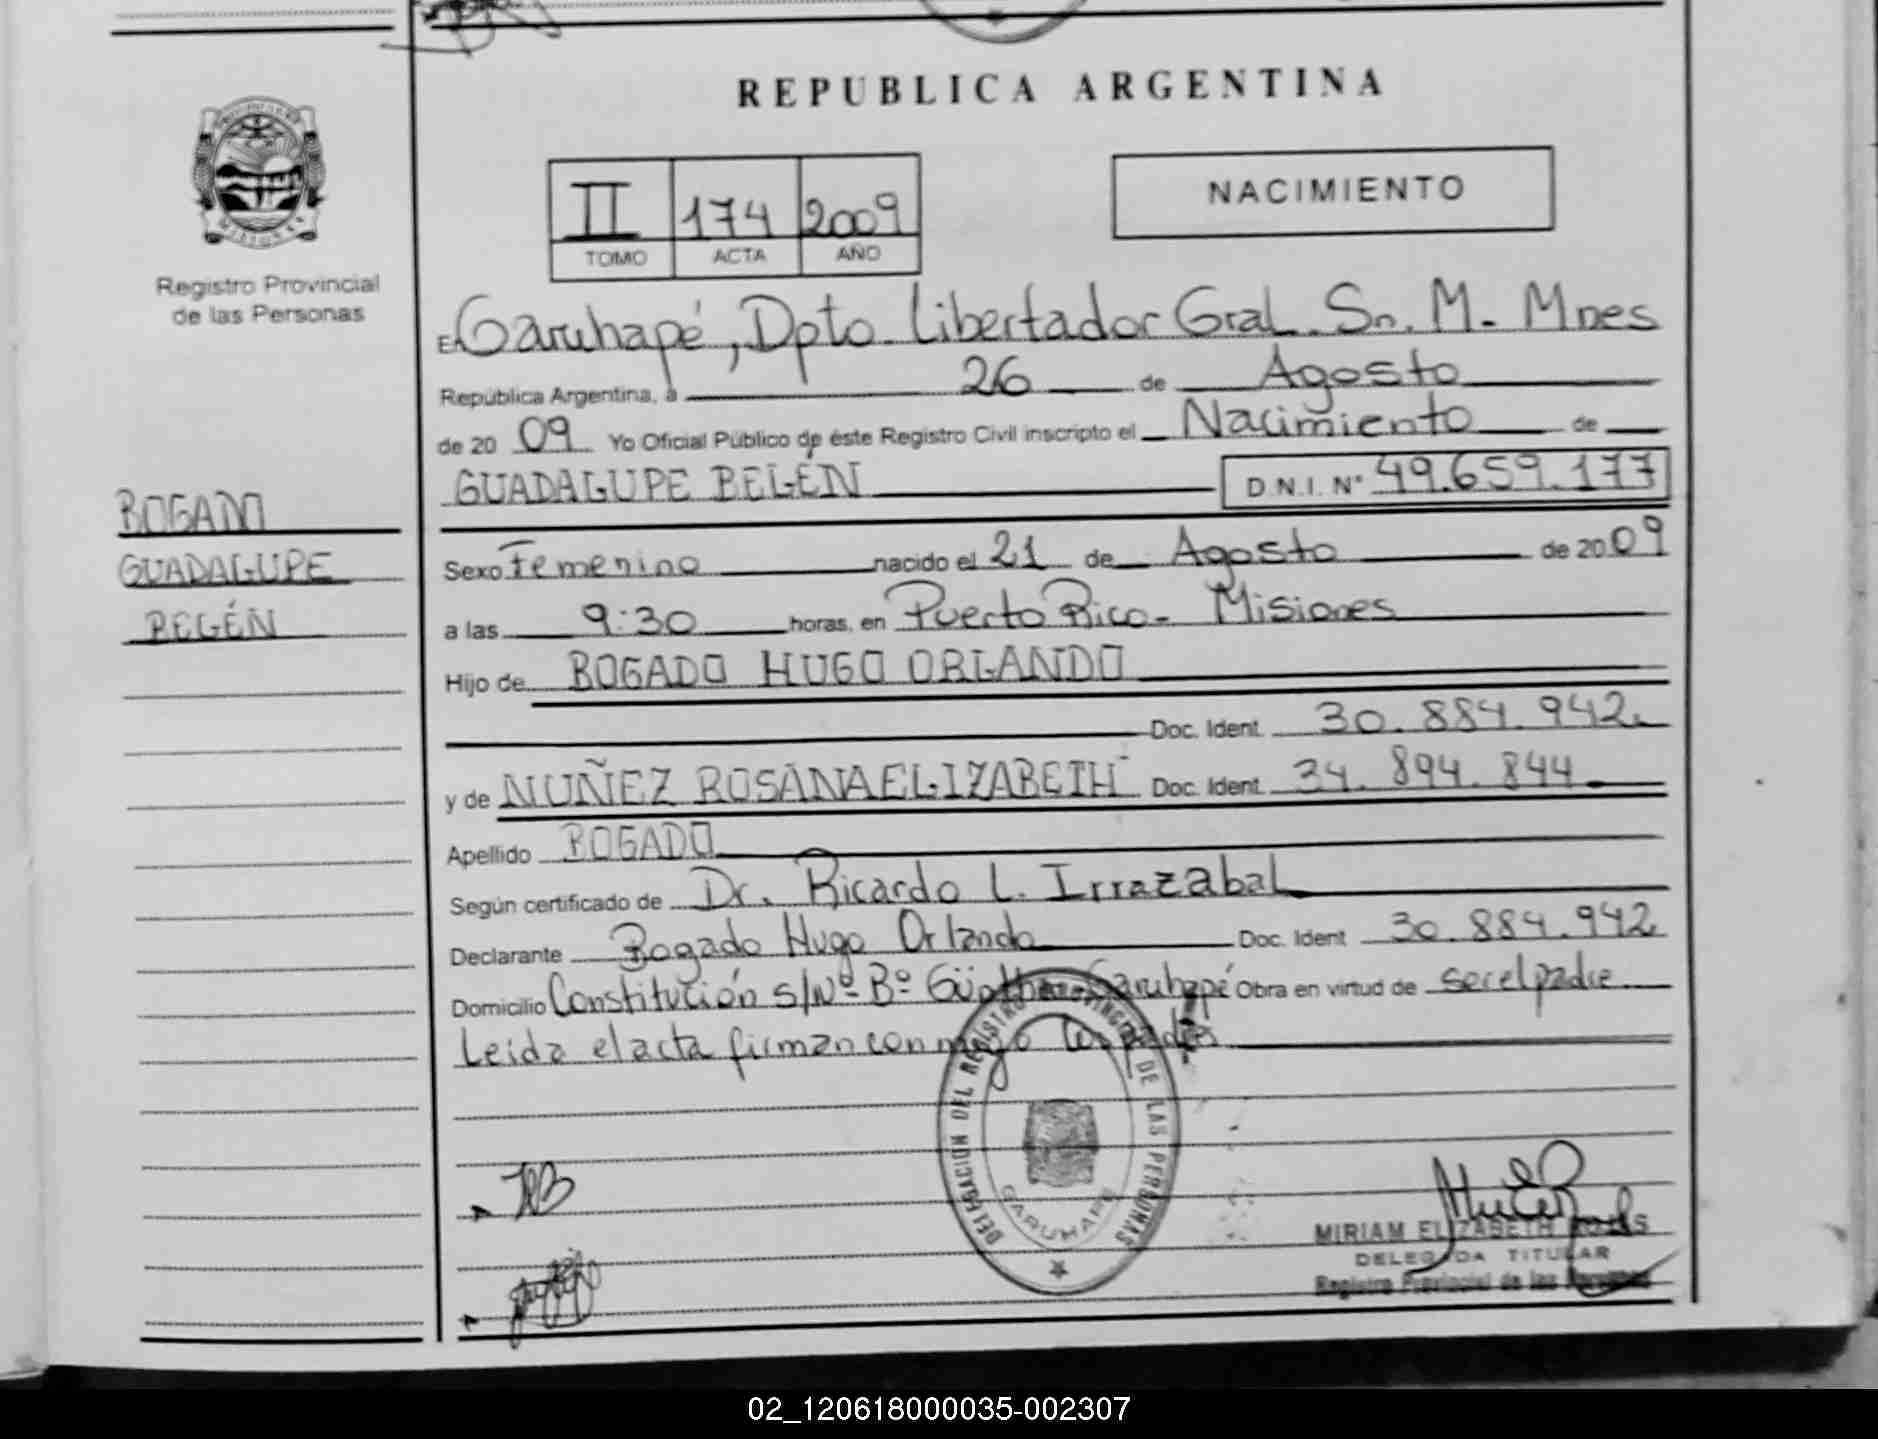 REPUBLICA ARGENTINA
PROVINCIA DE
MISIONES
Registro Provincial
de las Personas
II 174 2009
TOMO ACTA AÑO
NACIMIENTO
En Garuhapé, Dpto. Libertador Gral. Sn. M. Mnes
República Argentina, a 26 de Agosto
de 20 09 Yo Oficial Público de éste Registro Civil inscripto el Nacimiento de
GUADALUPE BELÉN D.N.I. N° 49.659.177
BOGADO
GUADALUPE
BELÉN
Sexo Femenino nacido el 21 de Agosto de 20 09
a las 9:30 horas, en Puerto Rico - Misiones
Hijo de BOGADO HUGO ORLANDO
Doc. Ident. 30.884.942
y de NUÑEZ ROSANA ELIZABETH Doc. Ident. 34.894.844
Apellido BOGADO
Según certificado de Dr. Ricardo L. Irrazabal
Declarante Bogado Hugo Orlando Doc. Ident 30.884.942
Domicilio Constitución s/Nº Bº Garuhapé Obra en virtud de ser el padre
Leida el acta firman conmigo los padres
DELEGACION DEL REGISTRO PROVINCIAL DE LAS PERSONAS
GARUHAPE
MIRIAM ELIZABETH
DELEGADA TITULAR
Registro Provincial de las Personas
02_120618000035-002307